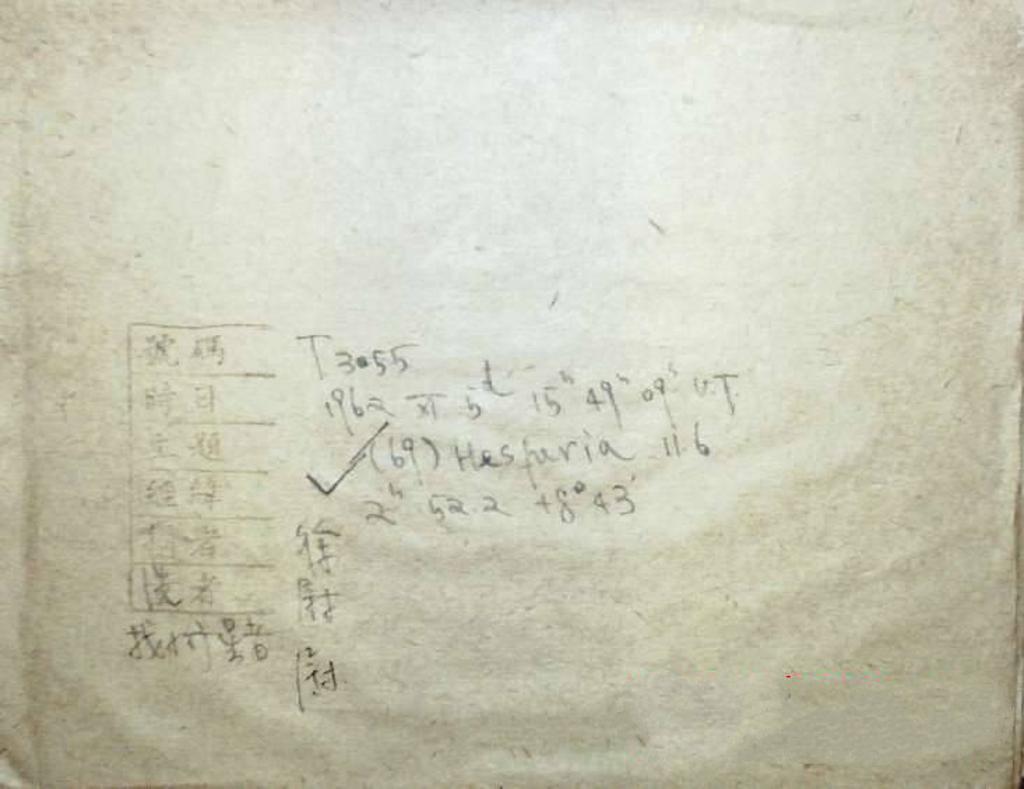 號碼 T3055
時日 1962 XI 5d 15h 49m 09s U.T.
主題 (69) Hesparia 11.6
經緯 2h 52.2 +8° 43'
者 徐
者
找 者